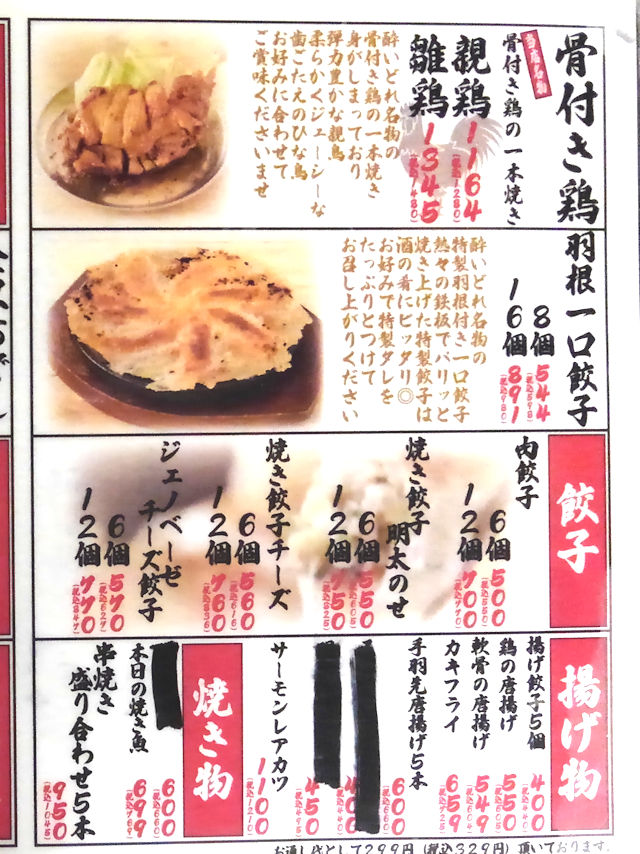 骨付き鶏
当店名物
骨付き鶏の一本焼き
親鶏
1164
(税込1280)
雛鶏
1345
(税込1480)
酔いどれ名物の
骨付き鶏の一本焼き
身がしまっており
弾力豊かな親鳥
柔らかくジューシーな
歯ごたえのひな鳥
お好みに合わせて
ご賞味くださいませ
羽根一口餃子
8個
544
(税込598)
16個
891
(税込980)
酔いどれ名物の
特製羽根付き一口餃子
熱々の鉄板でパリッと
焼き上げた特製餃子は
酒の肴にピッタリ◎
お好みで特製タレを
たっぷりとつけて
お召し上がりください
餃子
肉餃子
6個
500
(税込550)
12個
700
(税込770)
焼き餃子
明太のせ
6個
550
(税込605)
12個
750
(税込825)
焼き餃子チーズ
6個
560
(税込616)
12個
760
(税込836)
ジェノベーゼ
チーズ餃子
6個
570
(税込627)
12個
770
(税込847)
揚げ物
揚げ餃子5個
400
(税込440)
鶏の唐揚げ
550
軟骨の唐揚げ
549
カキフライ
659
手羽先唐揚げ5本
600
(税込660)
400
(税込440)
450
サーモンレアカツ
1100
(税込1210)
焼き物
600
(税込660)
本日の焼き魚
699
(税込769)
串焼き
盛り合わせ5本
950
(税込1045)
お通し代として299円(税込329円)頂いております。